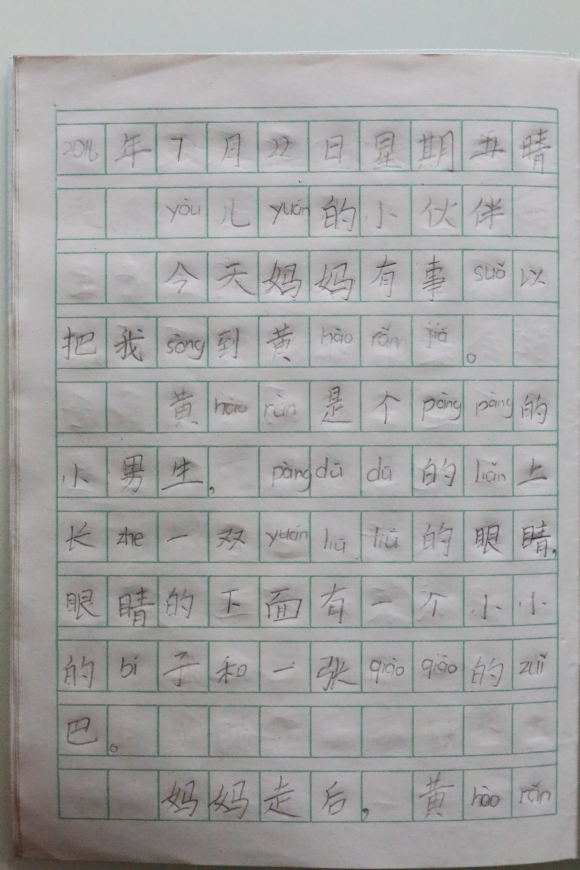 2016年7月22日星期五晴
yòu儿yuán的小伙伴
今天妈妈有事suǒ以
把我sòng到黄hào rǎn jiā。
黄hào rán是个pàng pàng的
小男生，pàng dū dū的liǎn上
长zhe一双yuán liū liū的眼睛，
眼睛的下面有一个小小
的bí子和一张qiào qiào的zuǐ
巴。
妈妈走后，黄hào rǎn